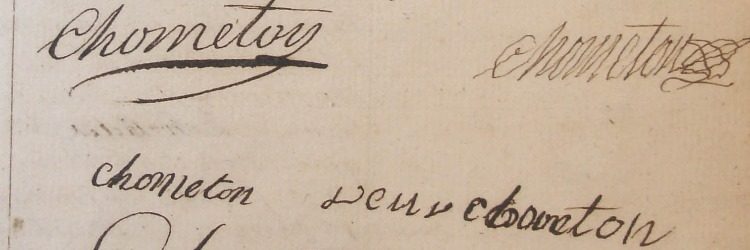 Chometon chometon
chometon veuve chometon